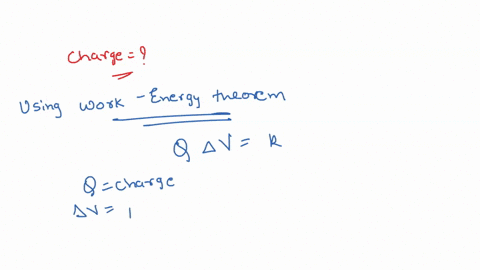 Charge = ?
Using work - Energy theorem
Q ΔV = k
Q = charge
ΔV =